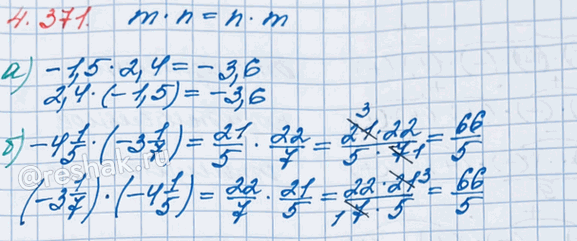 4.371. m · n = n · m
а) -1,5 · 2,4 = -3,6
2,4 · (-1,5) = -3,6
б) -4 1/5 · (-3 1/7) = 21/5 · 22/7 = 21 3 · 22 / 5 · 7 1 = 66/5
(-3 1/7) · (-4 1/5) = 22/7 · 21/5 = 22 · 21 3 / 1 7 · 5 = 66/5
@reshak.ru